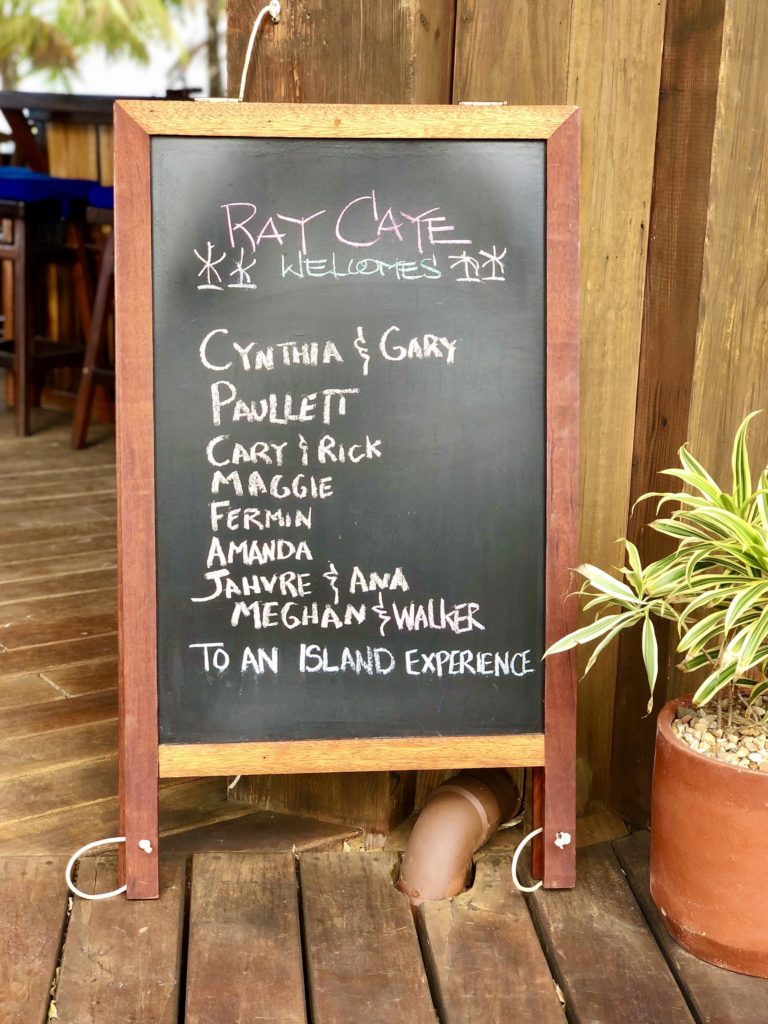 RAY CAYE
WELCOMES
CYNTHIA & GARY
PAULLETT
CARY & RICK
MAGGIE
FERMIN
AMANDA
JAHVRE & ANA
MEGHAN & WALKER
TO AN ISLAND EXPERIENCE